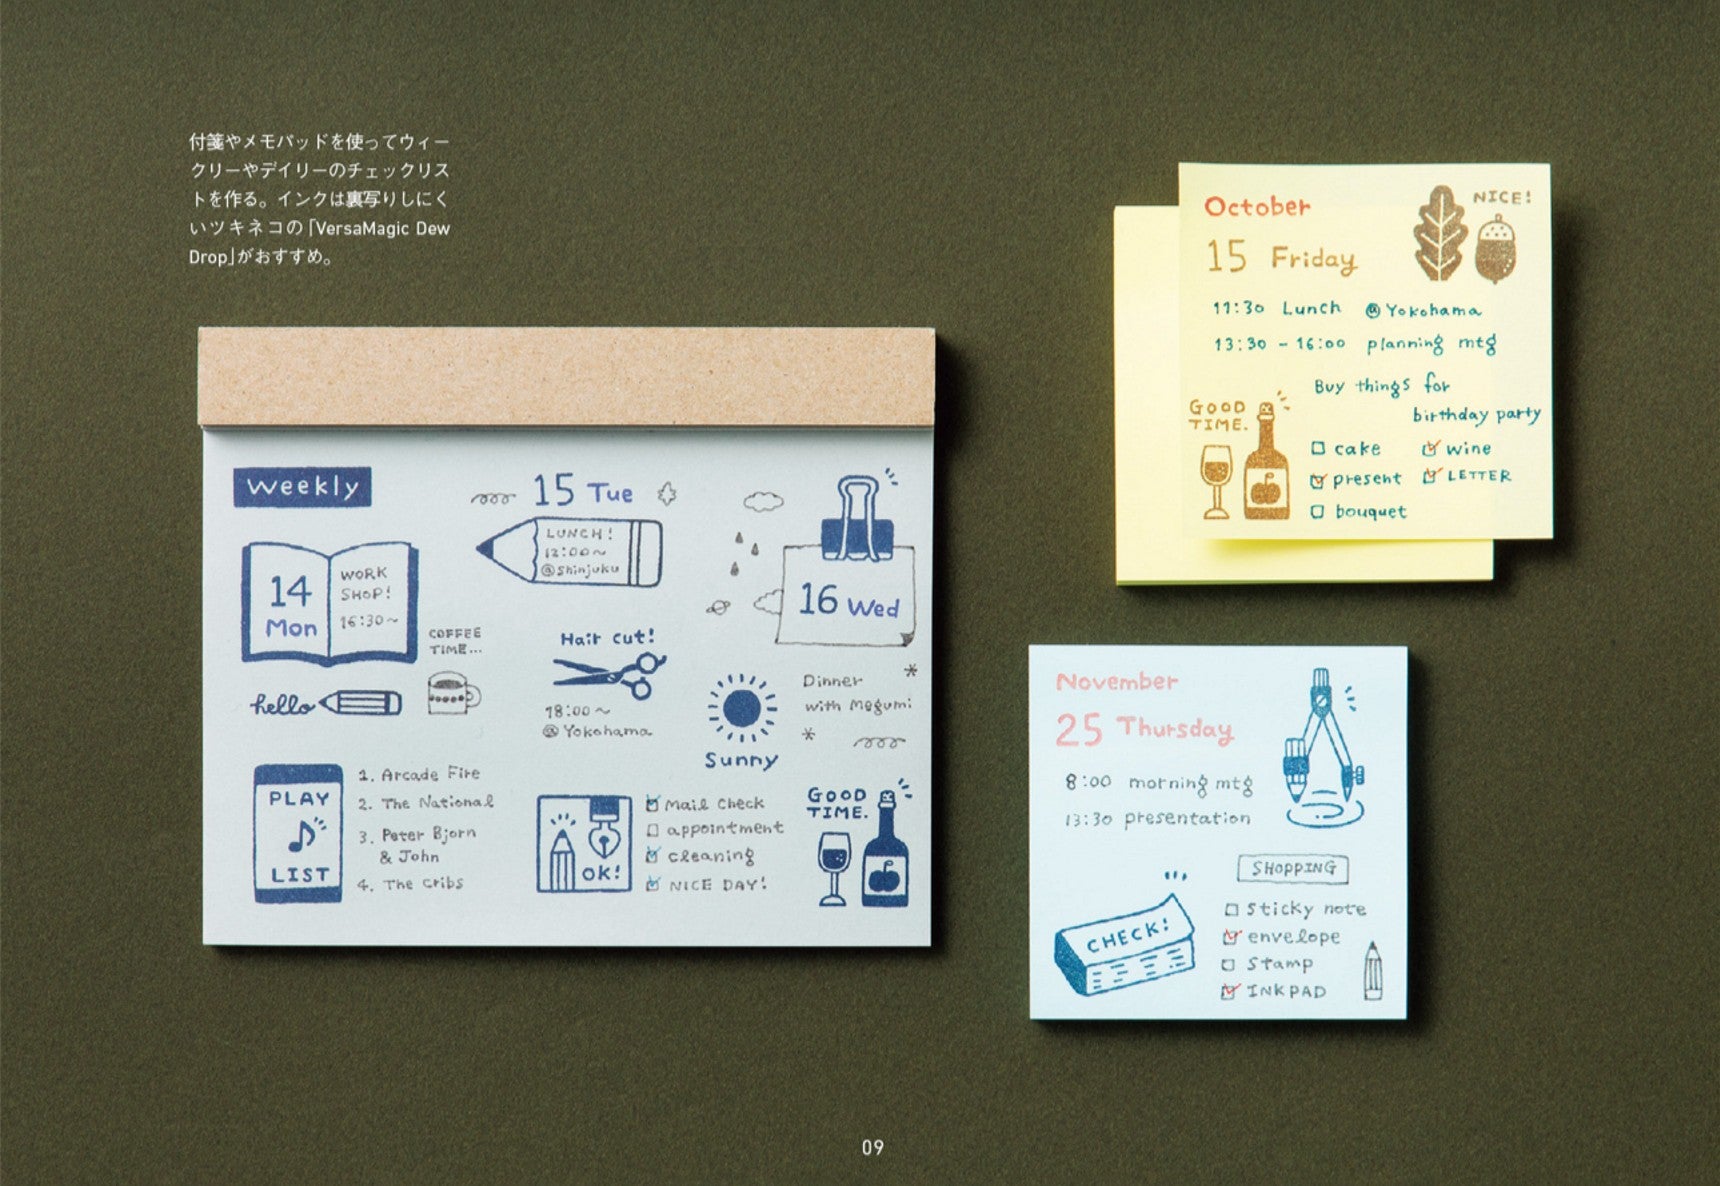 付箋やメモパッドを使ってウィー
クリーやデイリーのチェックリス
トを作る。インクは裏写りしにく
いツキネコの「VersaMagic Dew
Drop」がおすすめ。
Weekly
14
Mon
WORK
SHOP!
16:30~
COFFEE
TIME...
hello
15 Tue
LUNCH!
12:00~
@Shinjuku
Hair cut!
18:00~
@Yokohama
16 Wed
Sunny
Dinner
with Megumi
PLAY
LIST
1. Arcade Fire
2. The National
3. Peter Bjorn
& John
4. The Cribs
OK!
Mail Check
appointment
cleaning
NICE DAY!
GOOD
TIME.
October
15 Friday
NICE!
11:30 Lunch @Yokohama
13:30 - 16:00 planning mtg
Buy things for
birthday party
GOOD
TIME.
cake
present
bouquet
wine
LETTER
November
25 Thursday
8:00 morning mtg
13:30 presentation
CHECK!
SHOPPING
Sticky note
envelope
Stamp
INKPAD
09